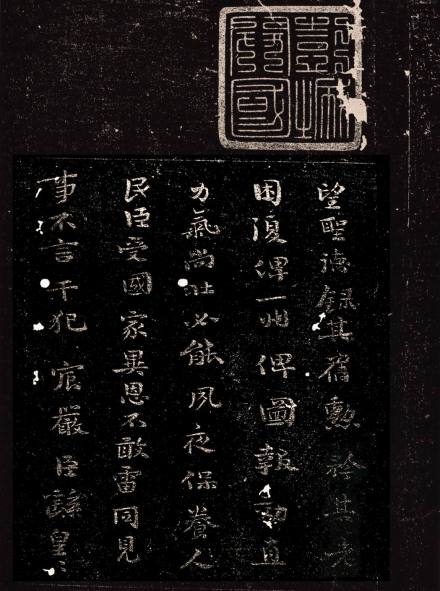 望聖德録其舊勳矜其老
困復俾一州俾圖報效直
力氣尚壯必能夙夜保養人
民臣受國家異恩不敢雷同見
事不言干犯宸嚴臣繇皇〻